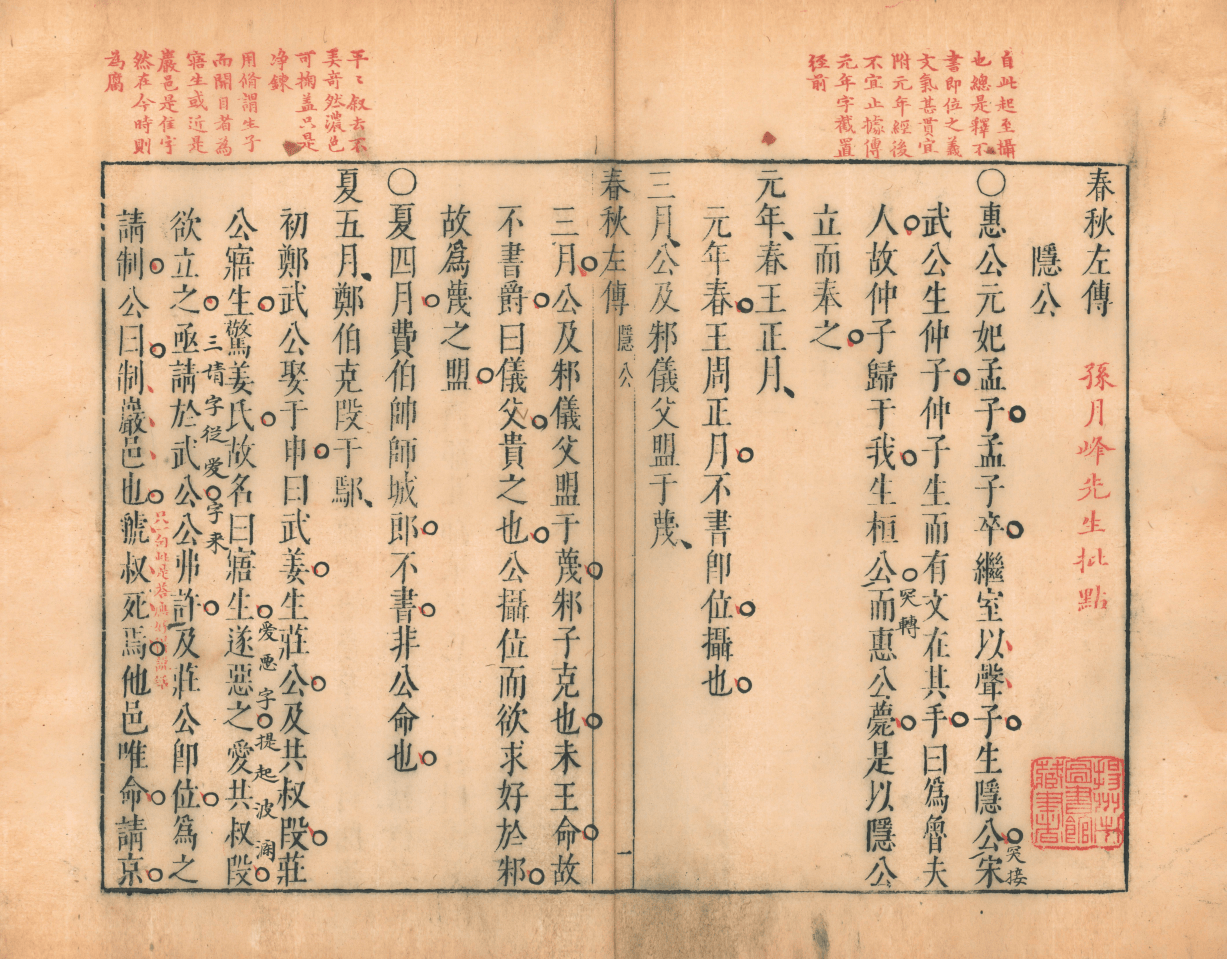 春秋左傳
孫月峰先生批點
隱公
自此起至攝
也總是釋不
書即位之義
文氣甚貫宜
附元年經後
不宜止據傳
元年字截置
徑前
○惠公元妃孟子孟子卒繼室以聲子生隱公宋
突接
武公生仲子仲子生而有文在其手曰爲魯夫
人故仲子歸于我生桓公而惠公薨是以隱公
突轉
立而奉之
元年春王正月
元年春王周正月不書卽位攝也
三月公及邾儀父盟于蔑
春秋左傳
隱公
一
三月公及邾儀父盟于蔑邾子克也未王命故
不書爵曰儀父貴之也公攝位而欲求好於邾
故爲蔑之盟
○夏四月費伯帥師城郎不書非公命也
平〻叙去不
美奇然濃色
可掬蓋只是
净鍊
夏五月鄭伯克段于鄢
初鄭武公娶于申曰武姜生莊公及共叔段莊
用脩謂生子
而開目者為
寤生或近是
公寤生驚姜氏故名曰寤生遂惡之愛共叔段
愛惡字提起波瀾
欲立之亟請於武公公弗許及莊公卽位爲之
三請字從愛字來
巖邑是住字
然在今時則
為腐
請制公曰制巖邑也虢叔死焉他邑唯命請京
揚州市圖書館藏書者